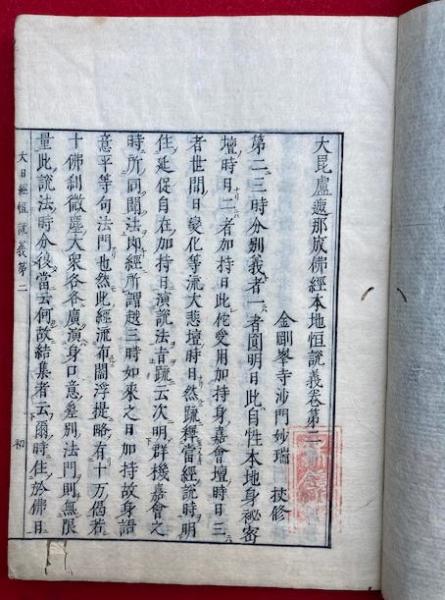 大毘盧遮那成佛經本地恒說義卷第二
金剛峯寺沙門妙瑞 挍修
第二三時分別義者一者圓明日此自性本地身祕密
壇時日二者加持日此佗受用加持身嘉會壇時日三
者世間日變化等流大悲壇時日然䟽釋當經說時明
住延促自在加持日演說法旨䟽云次明群機嘉會之
時所同聞法肉經所謂越三時如來之日加持故身語
意平等句法門也然此經流布閻浮提略有十万偈若
十佛刹微塵大衆各各廣演身口意差別法門則無限
量此說法時分後當云何故結集者云爾時住於佛日
大日經恒說義第二
初